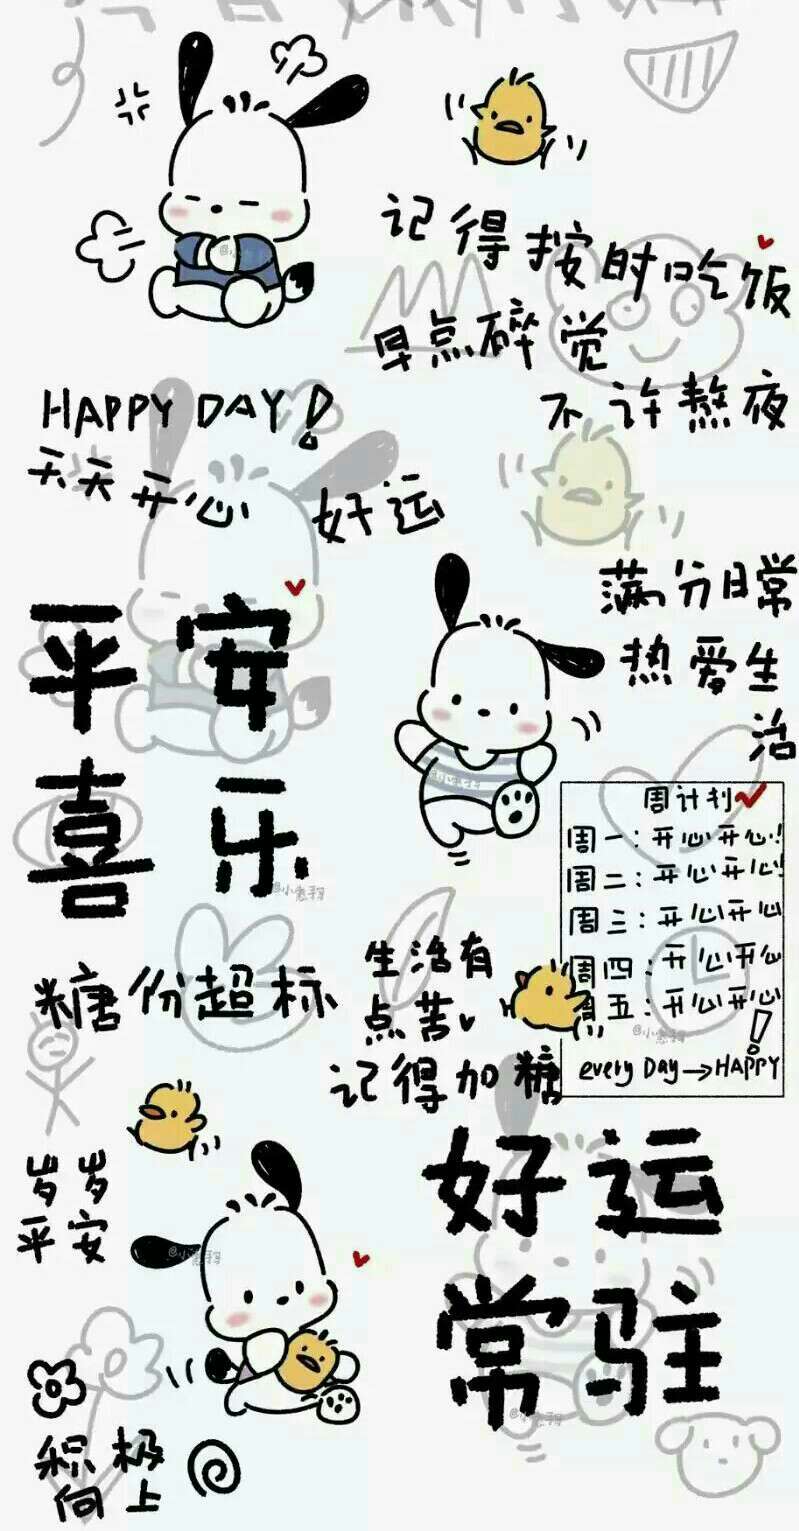 记得按时吃饭
早点碎觉
不许熬夜
HAPPY DAY!
天天开心
好运
平安
喜乐
满分日常
热爱生
活
周计划
周一:开心开心!
周二:开心开心!
周三:开心开心
周四:开心开心
周五:开心开心!
every Day→HAPPY
糖份超标
生活有
点苦
记得加糖
岁岁
平安
好运
常驻
积极
向上